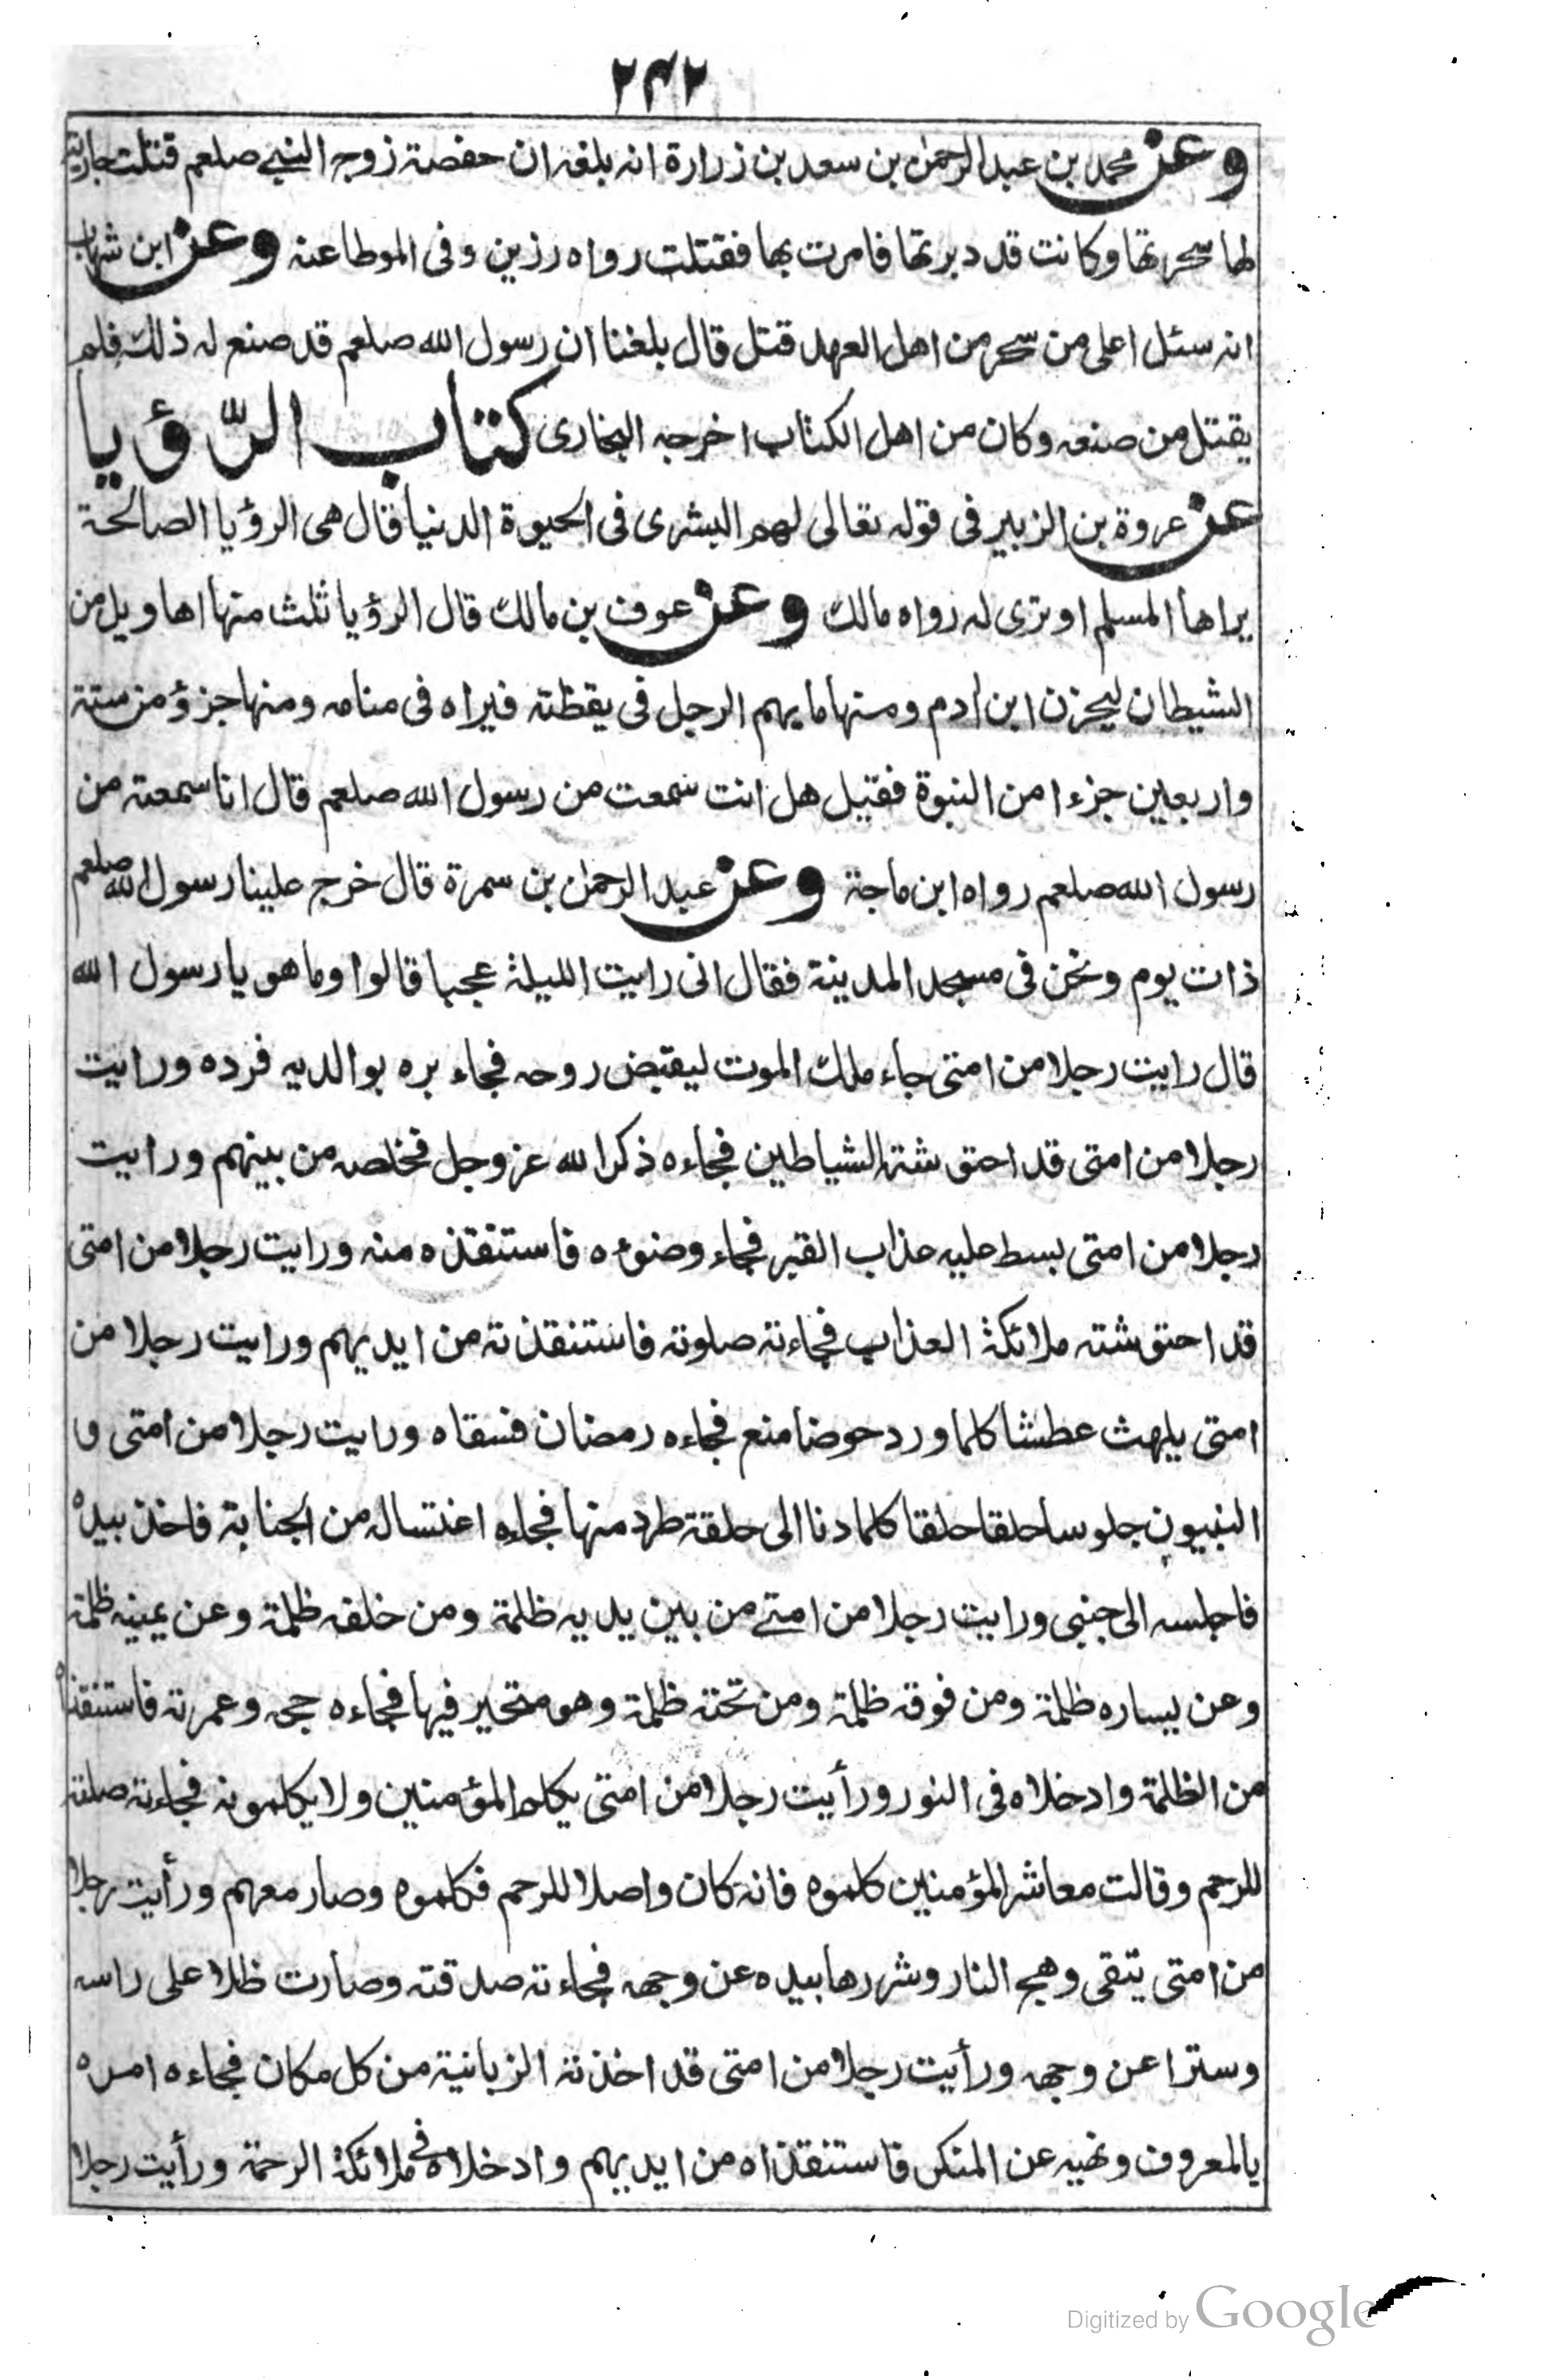 ٢٤٢
وعن محمد بن عبد الرحمن بن سعد بن زرارة انه بلغه ان حفصة زوجه النبي صلعم قتلت جارية
لها سحرتها وكانت قد دبرتها فامرت بها فقتلت رواه رزين وفى الموطا عنه وعن ابن شهاب
انه سئل اعلى من سحر من اهل العهد قتل قال بلغنا ان رسول الله صلعم قد صنع له ذلك فلم
يقتل من صنعه وكان من اهل الكتاب اخرجه البخارى كتاب الرّؤيا
عن عروة بن الزبير فى قوله تعالى لهم البشرى فى الحيوة الدنيا قال هى الرؤيا الصالحة
يراها المسلم او ترى له رواه مالك وعن عوف بن مالك قال الرؤيا ثلث منها اهاويل من
الشيطان ليحزن ابن ادم ومنها ما يهم الرجل فى يقظته فيراه فى منامه ومنها جزؤ من ستة
واربعين جزءا من النبوة فقيل هل انت سمعت من رسول الله صلعم قال انا سمعته من
رسول الله صلعم رواه ابن ماجة وعن عبد الرحمن بن سمرة قال خرج علينا رسول الله صلعم
ذات يوم ونحن فى مسجد المدينة فقال انى رايت الليلة عجبا قالوا وما هو يا رسول الله
قال رايت رجلا من امتى جاء ملك الموت ليقبض روحه فجاء بره بوالديه فرده ورايت
رجلا من امتى قد احتوشته الشياطين فجاءه ذكر الله عز وجل فخلصه من بينهم ورايت
رجلا من امتى بسط عليه عذاب القبر فجاء وضوءه فاستنقذه منه ورايت رجلا من امتى
قد احتوشته ملائكة العذاب فجاءته صلوته فاستنقذته من ايديهم ورايت رجلا من
امتى يلهث عطشا كلما ورد حوضا منع فجاءه رمضان فسقاه ورايت رجلا من امتى و
النبيون جلوسا حلقا حلقا كلما دنا الى حلقة طرد منها فجاءه اغتساله من الجنابة فاخذ بيده
فاجلسه الى جنبى ورايت رجلا من امتے من بين يديه ظلمة ومن خلفه ظلمة وعن يمينه ظلمة
وعن يساره ظلمة ومن فوقه ظلمة ومن تحته ظلمة وهو متحير فيها فجاءه حجه وعمرته فاستنقذاه
من الظلمة وادخلاه فى النور ورأيت رجلا من امتى يكلم المؤمنين ولا يكلمونه فجاءته صلته
للرحم وقالت معاشر المؤمنين كلموه فانه كان واصلا للرحم فكلموه وصار معهم ورأيت رجلا
من امتى يتقى وهج النار وشررها بيده عن وجهه فجاءته صدقته وصارت ظلا على راسه
وسترا عن وجهه ورأيت رجلا من امتى قد اخذته الزبانية من كل مكان فجاءه امره
بالمعروف ونهيه عن المنكر فاستنقذاه من ايديهم وادخلاه فى ملائكة الرحمة ورأيت رجلا
Digitized by Google